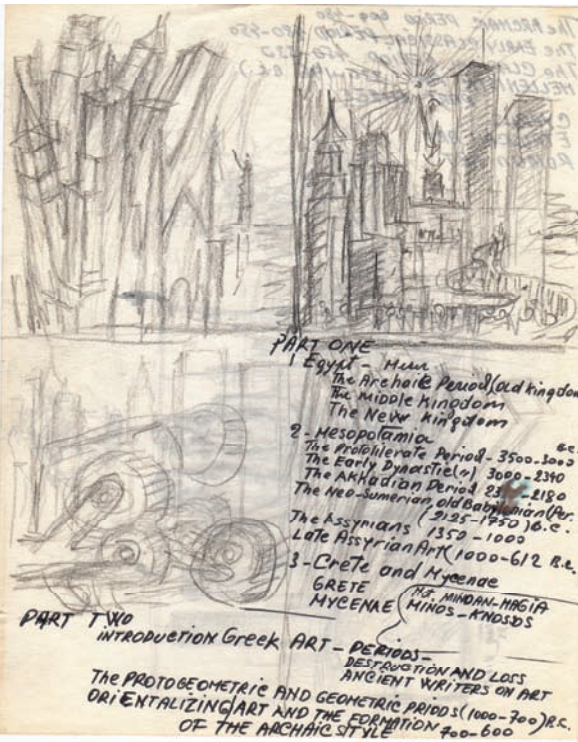 PART ONE
1 Egypt -
The Archaic Period (old kingdom
The Middle Kingdom
The New Kingdom
2 - Mesopotamia
B.C.
The Protoliterate Period - 3500-3000
The Early Dynastic(") 3000-2340
The Akkadian Period 2180
The Neo-Sumerian, old Babylonian (Per.
(2125-1750) B.C.
The Assyrians 1350-1000
Late Assyrian Art (1000-612 B.C.
3 - Crete and Mycenae
GRETE
MYCENAE (MINOAN-MAGIA
MINOS - KNOSOS
PART TWO
INTRODUCTION Greek ART - PERIODS -
DESTRUCTION AND LOSS
ANCIENT WRITERS ON ART
The PROTOGEOMETRIC AND GEOMETRIC PRIODS (1000-700) B.C.
ORIENTALIZING ART AND THE FORMATION
OF THE ARCHAIC STYLE 700-600